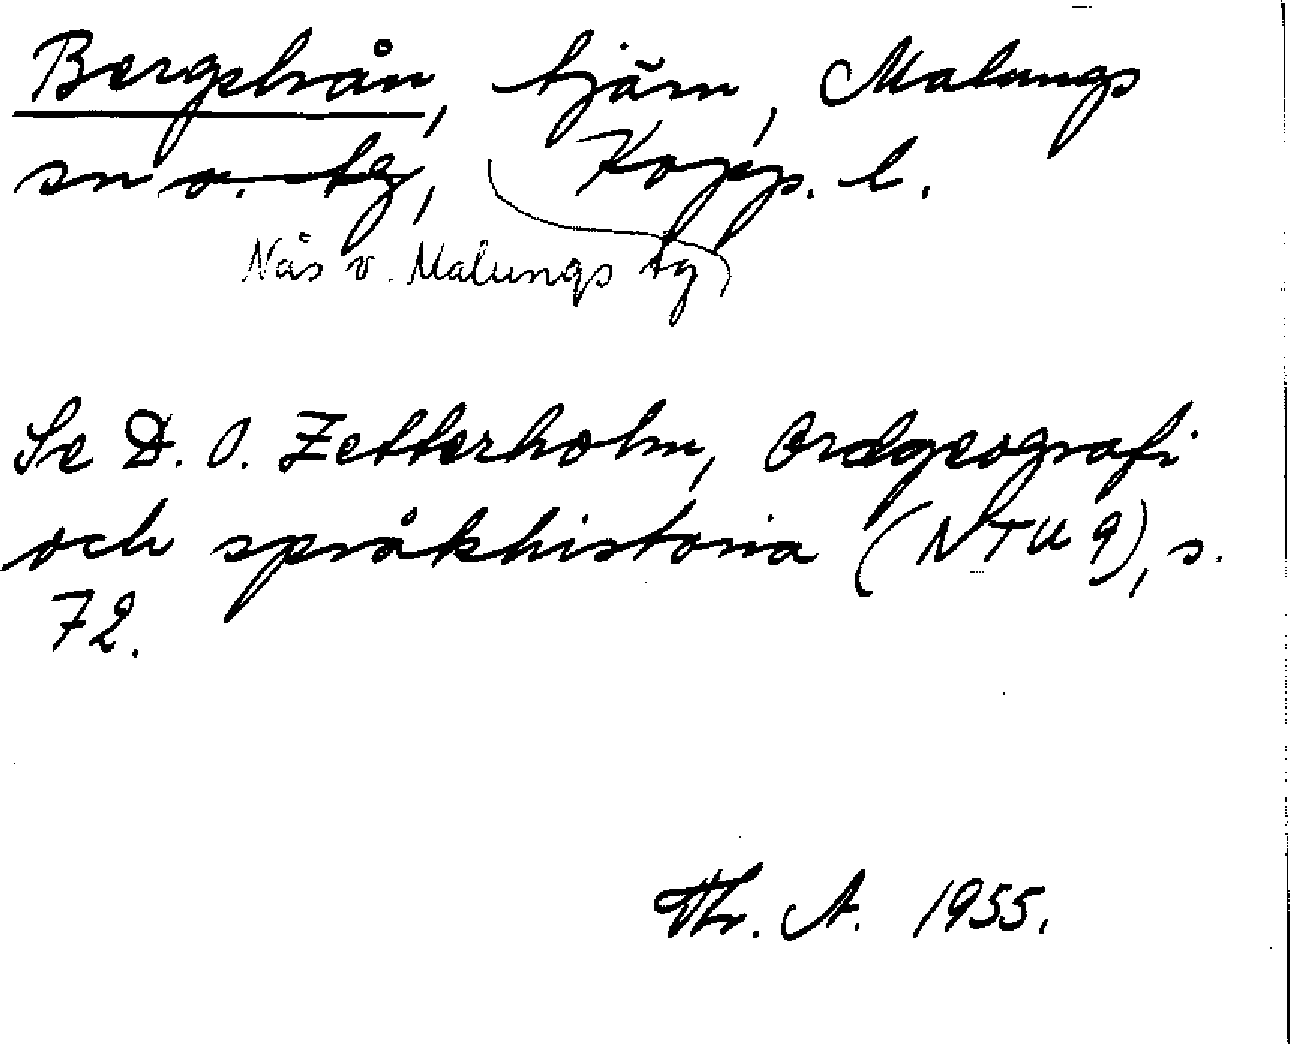 Bergstrån, tjärn, Malungs
sn o. tg, Kopp. l.
Nås v. Malungs tg
Se D. O. Zetterholm, Ordgeografi
och språkhistoria (NTU 9), s.
72.
Th. A. 1955.